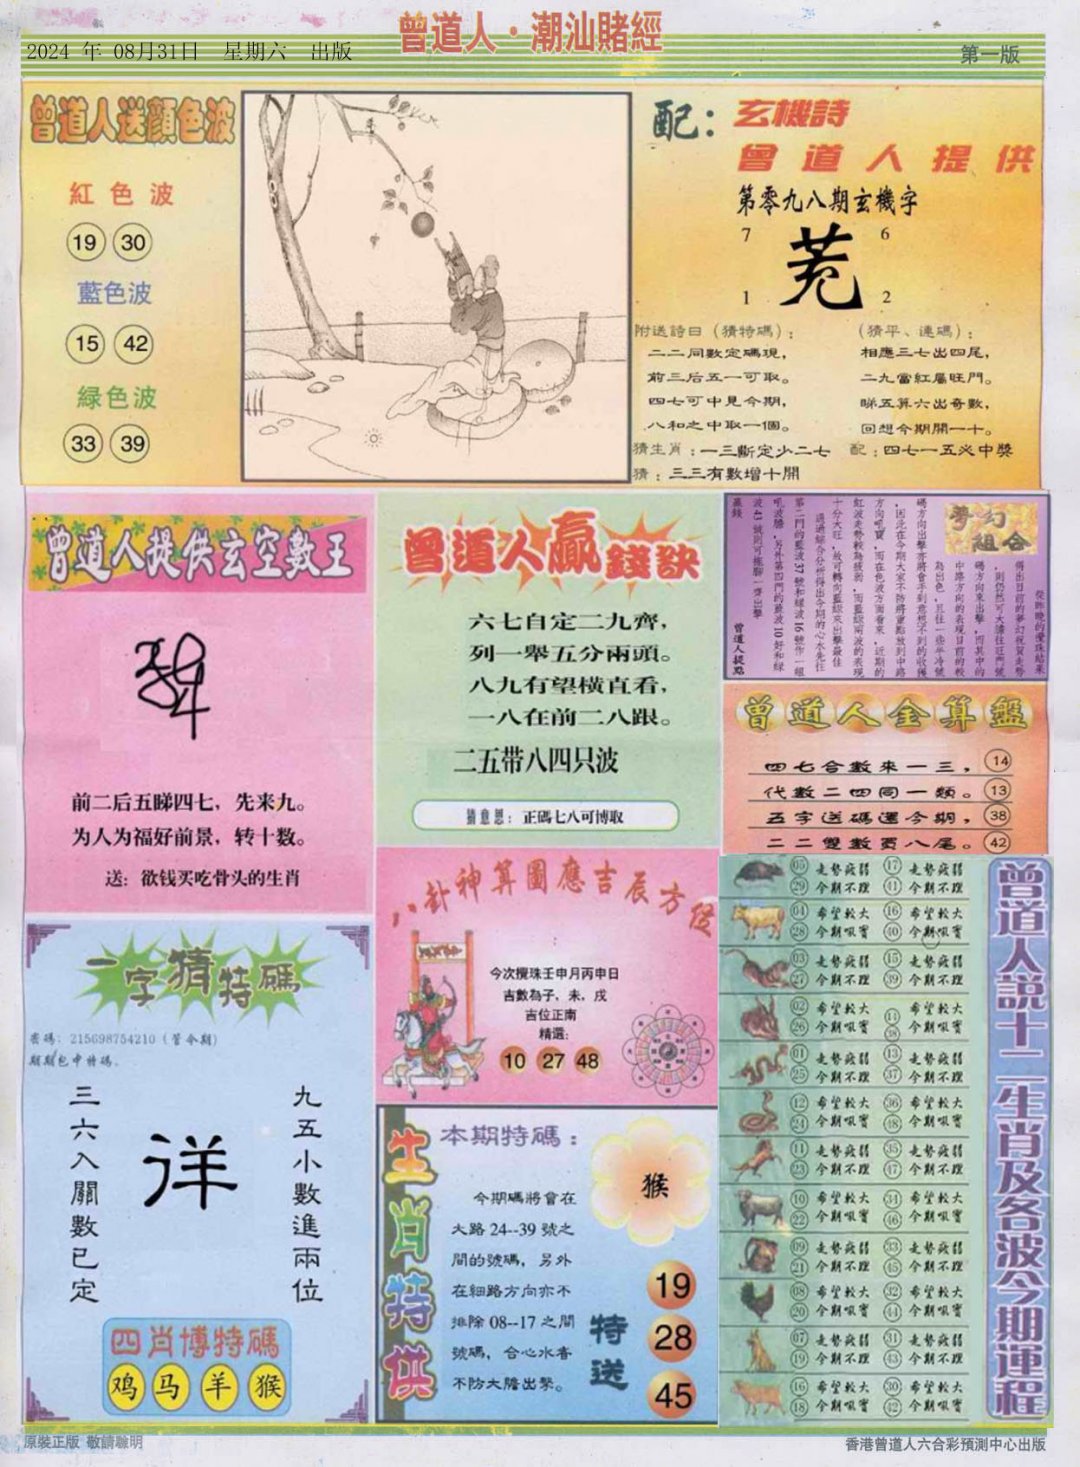 曾道人·潮汕賭經
2024 年 08月31日 星期六 出版
第一版
曾道人送顔色波
紅色波
19 30
藍色波
15 42
緑色波
33 39
配：玄機詩
曾道人提供
第零九八期玄機字
7 6
1 2
附送詩曰（猜特碼）：
二二同數定碼現，
前三后五一可取。
四七可中見今期，
八和之中取一個。
猜生肖：一三斷定少二七
猜：三三有數增十開
（猜平、連碼）：
相應三七出四尾，
二九當紅屬旺門。
睇五算六出奇數，
回想今期開一十。
配：四七一五必中獎
曾道人提供玄空數王
前二后五睇四七，先来九。
为人为福好前景，转十数。
送：欲钱买吃骨头的生肖
曾道人贏錢訣
六七自定二九齊，
列一舉五分兩頭。
八九有望橫直看，
一八在前二八跟。
二五带八四只波
猜意思：正碼七八可博取
夢幻組合
曾道人提點
曾道人金算盤
四七合數來一三， 14
代數二四同一類。 13
五字送碼還今期， 38
二二雙數買八尾。 42
一字猜特碼
密碼：215698754210（管今期）
期期包中特碼。
三六入關數已定
九五小數進兩位
四肖博特碼
鸡 马 羊 猴
八卦神算圖應吉辰方位
今次攪珠壬申月丙申日
吉數為子，未，戌
吉位正南
精選：
10 27 48
生肖特供
本期特碼：
猴
今期碼將會在
大路24--39號之
間的號碼，另外
在細路方向亦不
排除08--17之間
號碼，合心水者
不防大膽出擊。
特送
19
28
45
曾道人説十二生肖及各波今期運程
05 走勢疲弱 17 走勢疲弱
29 今期不理 41 今期不理
04 希望較大 16 希望較大
28 今期呱寳 40 今期呱寳
03 走勢疲弱 15 走勢疲弱
27 今期不理 39 今期不理
02 希望較大 14 希望較大
26 今期呱寳 38 今期呱寳
01 走勢疲弱 13 走勢疲弱
25 今期不理 37 今期不理
12 希望較大 36 希望較大
24 今期呱寳 48 今期呱寳
11 走勢疲弱 35 走勢疲弱
23 今期不理 47 今期不理
10 希望較大 34 希望較大
22 今期呱寳 46 今期呱寳
09 走勢疲弱 33 走勢疲弱
21 今期不理 45 今期不理
08 希望較大 32 希望較大
20 今期呱寳 44 今期呱寳
07 走勢疲弱 31 走勢疲弱
19 今期不理 43 今期不理
希望較大 30 希望較大
18 今期呱寳 42 今期呱寳
原裝正版 敬請聯明
香港曾道人六合彩預測中心出版